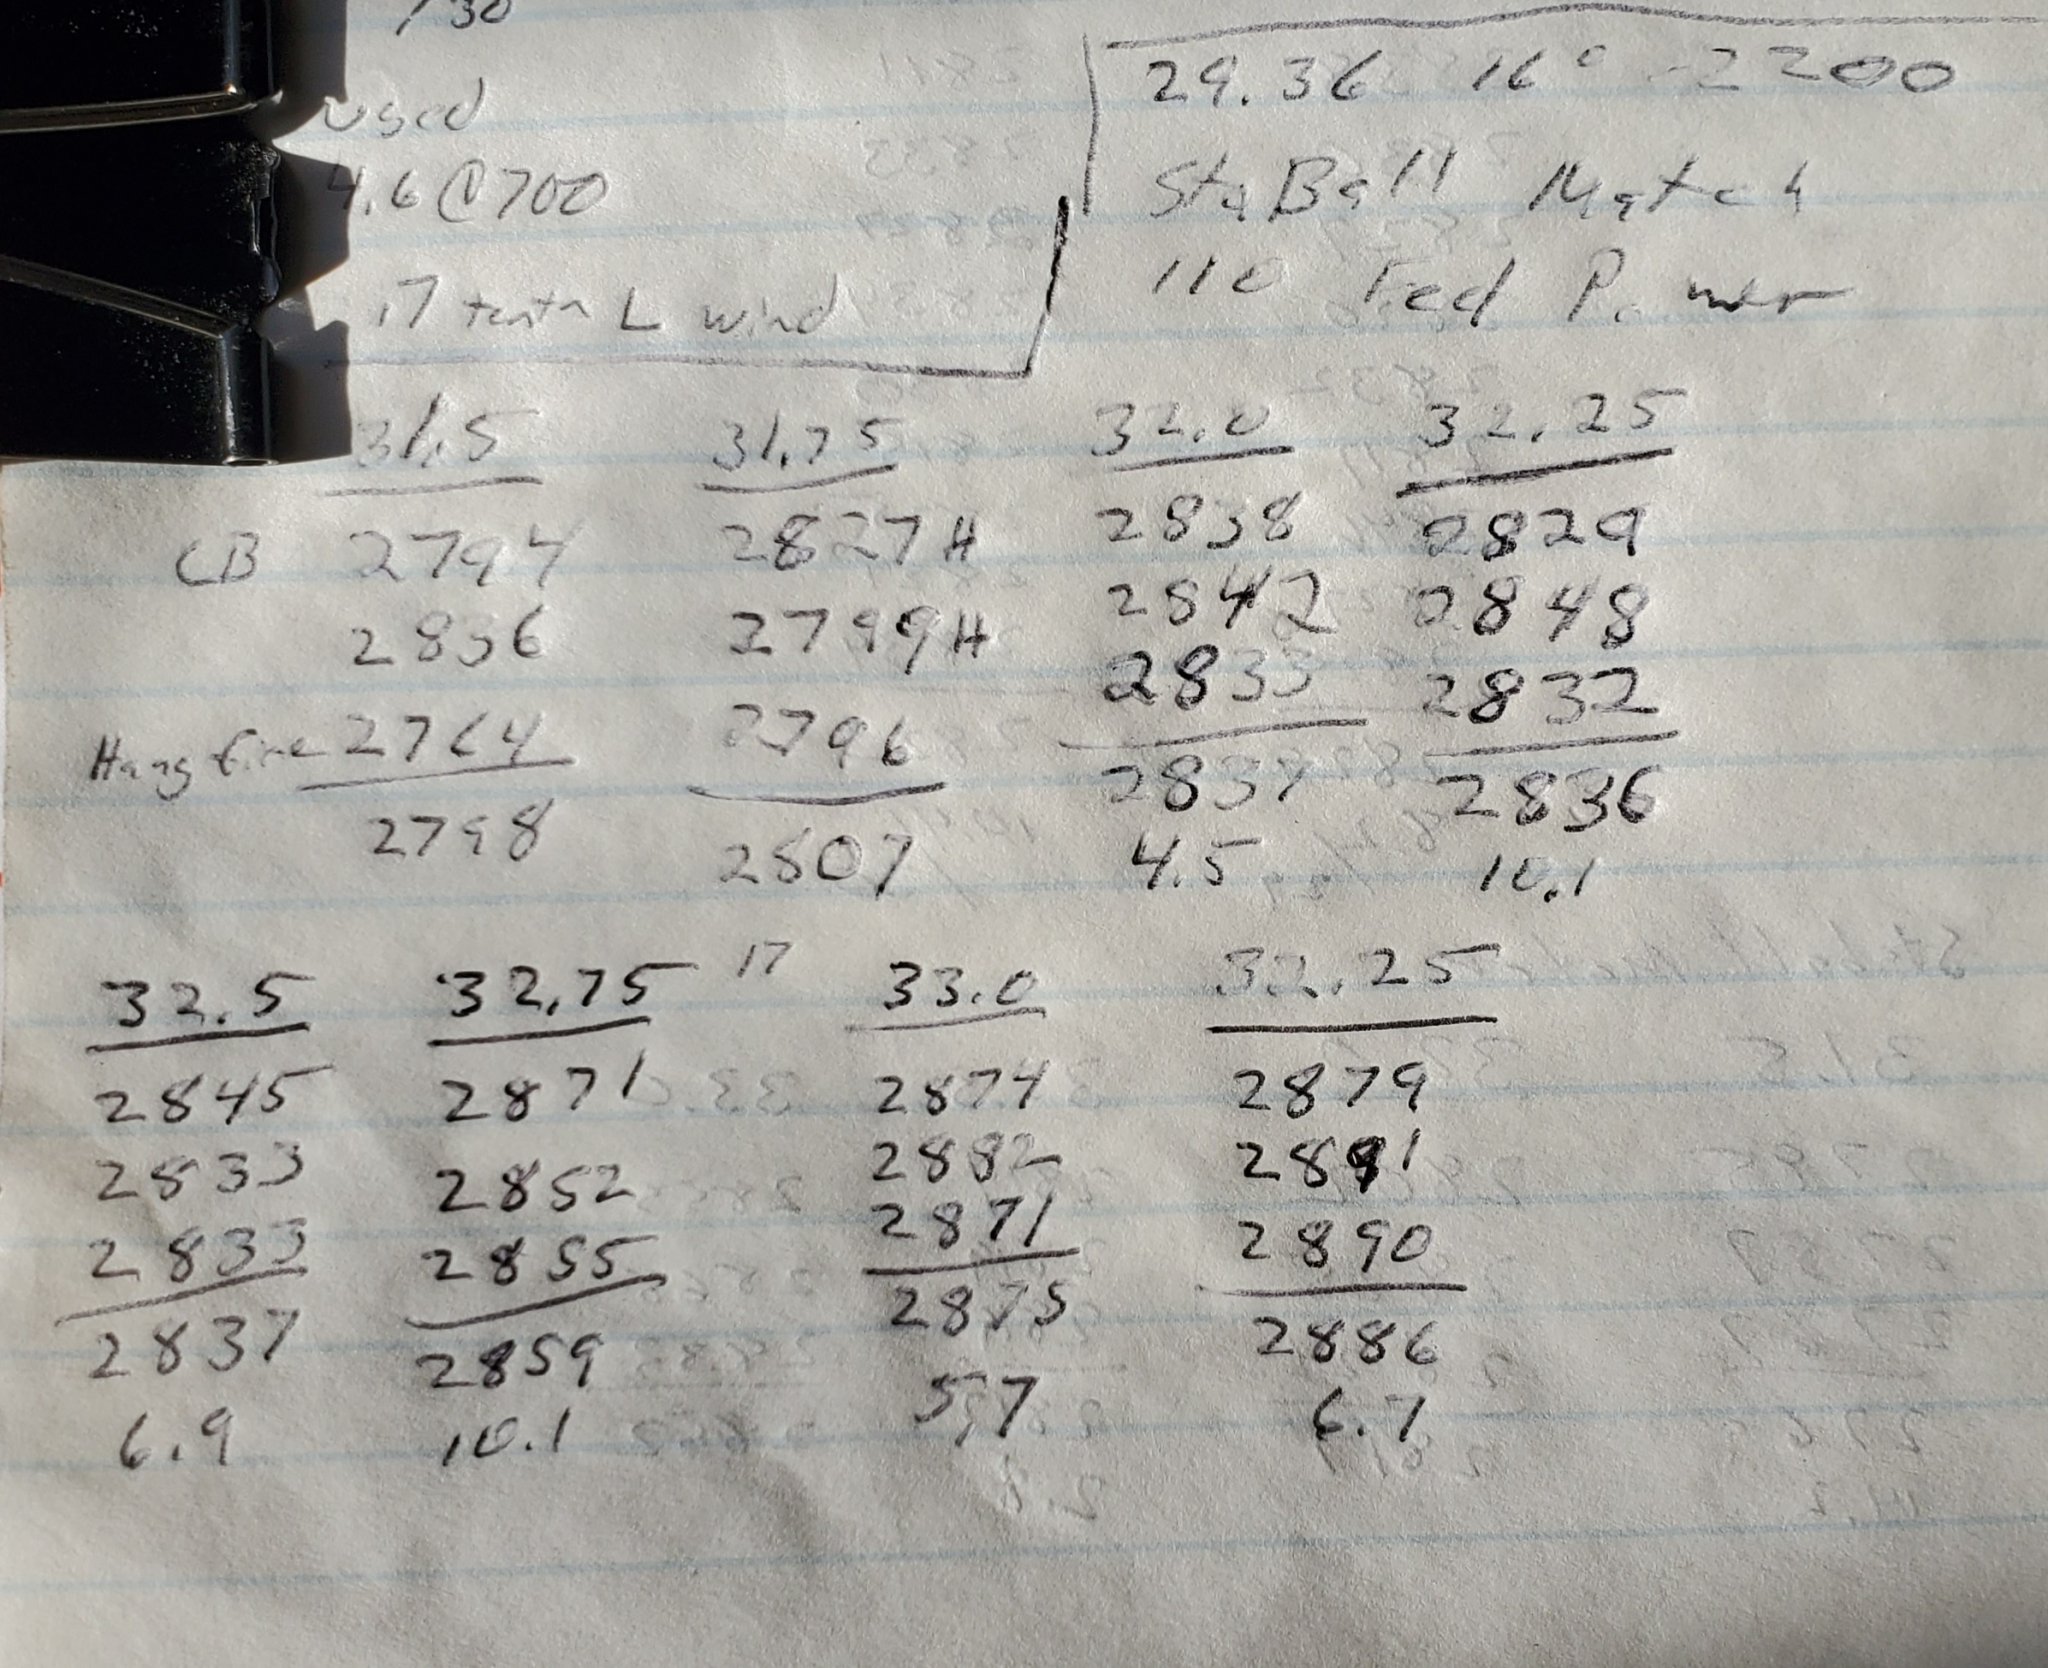 730
used
4.6 @ 700
17 tenth L wind
29.36 16° -2200
StaBall Match
110 Fed Power
31.5 31.75 32.0 32.25
CB 2794 2827 H 2838 2829
2836 2799 H 2842 2848
Hang fire 2764 2796 2833 2832
2798 2807 2837 2836
4.5 10.1
32.5 32.75 17 33.0 32.25
2845 2871 2874 2879
2833 2852 2882 2891
2833 2855 2871 2890
2837 2859 2875 2886
6.9 10.1 5.7 6.7